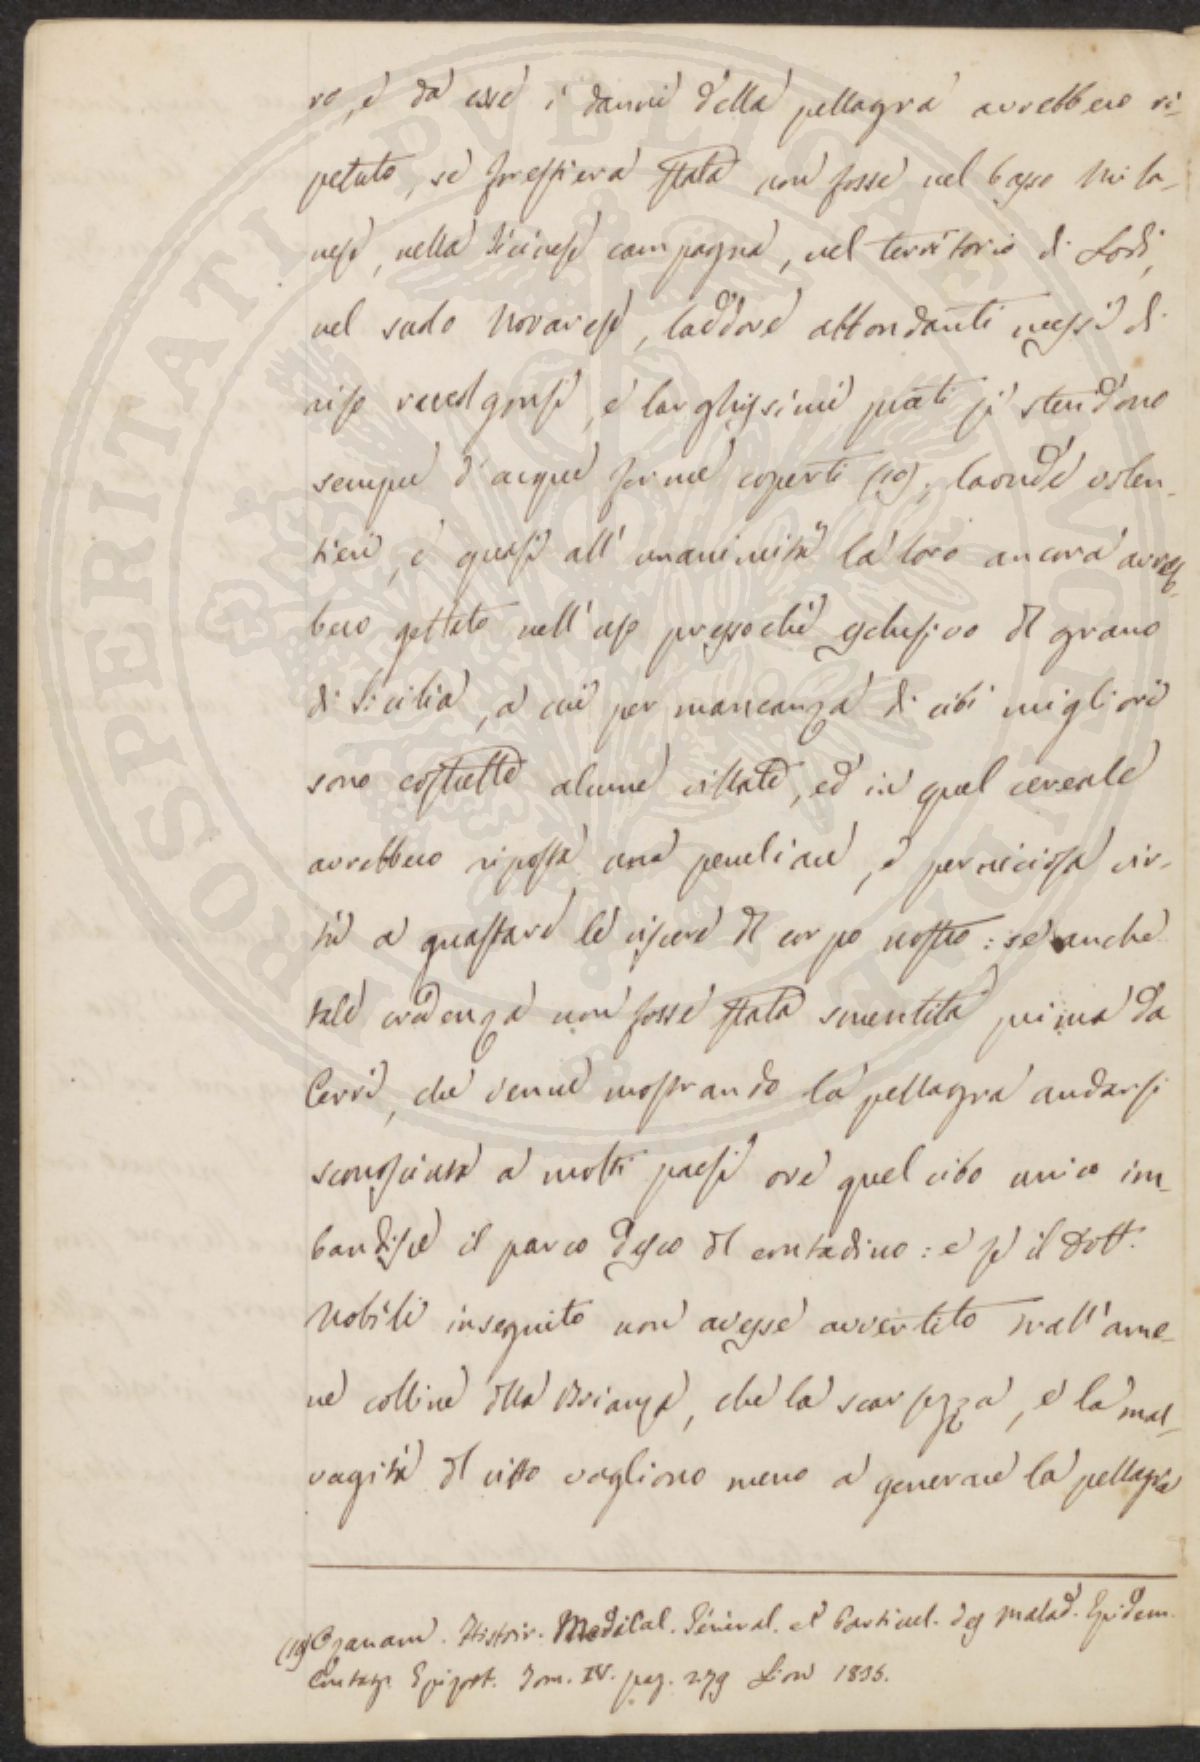 ro, e da esse i danni della pellagra avrebbero ri-
petuto, se forestiera stata non fosse nel basso Mila-
nese, nella Ticinese campagna, nel territorio di Lodi,
nel sudo Novarese, laddove abbondanti messi di
riso raccolgonsi, e larghissimi prati si stendono
sempre d'acque ferme coperti (19); laonde volen-
tieri, e quasi all'unanimità la loro ancora avreb-
bero gettato nell'uso pressochè esclusivo del grano
di Sicilia, a cui per mancanza di cibi migliori
sono costrette alcune villate, ed in quel cereale
avrebbero riposta una peculiare, e perniciosa vir-
tù a guastare le viscere del corpo nostro: se anche
tale credenza non fosse stata smentita prima da
Cerri, che venne mostrando la pellagra andarsi
sconosciuta a molti paesi ove quel cibo unico im-
bandisce il parco desco del contadino: e se il Dott.
Nobili inseguito non avesse avvertito trall'ame-
ne colline della Brianza, che la scarsezza, e la mal-
vagità del vitto vagliono meno a generare la pellagra
(19) Ozanam. Histoir. Medical. Général. et Particul. des Malad. Epidem.
Contag. Epizoot. Tom. IV. pag. 279 Lion 1835.
IMPROSPERITATI PUBLICAE